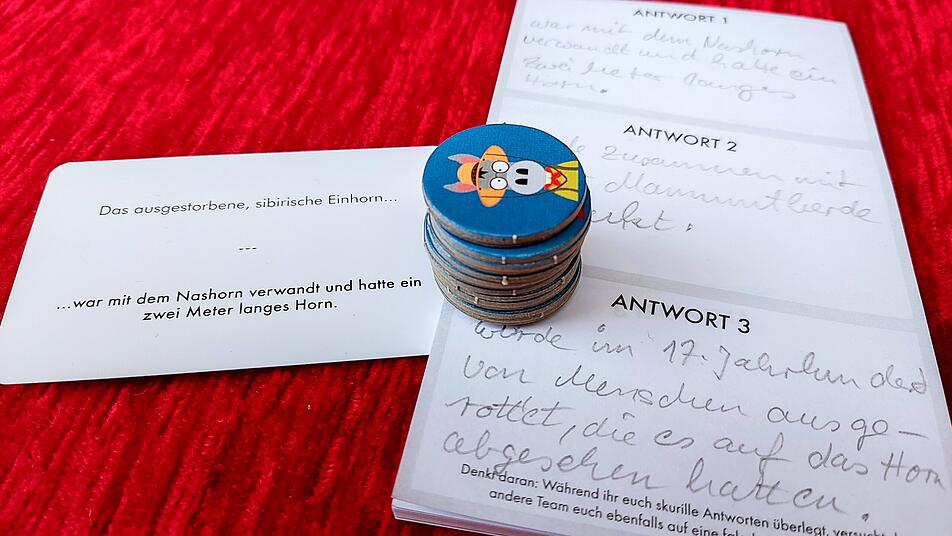 Das ausgestorbene, sibirische Einhorn...
---
...war mit dem Nashorn verwandt und hatte ein
zwei Meter langes Horn.
ANTWORT 1
war mit dem Nashorn
verwandt und hatte ein
zwei Meter langes
Horn.
ANTWORT 2
zusammen mit
Mammutherde
ANTWORT 3
wurde im 17. Jahrhundert
von Menschen ausge-
rottet, die es auf das Horn
abgesehen hatten.
Denkt daran: Während ihr euch skurille Antworten überlegt, versucht
andere Team euch ebenfalls auf eine